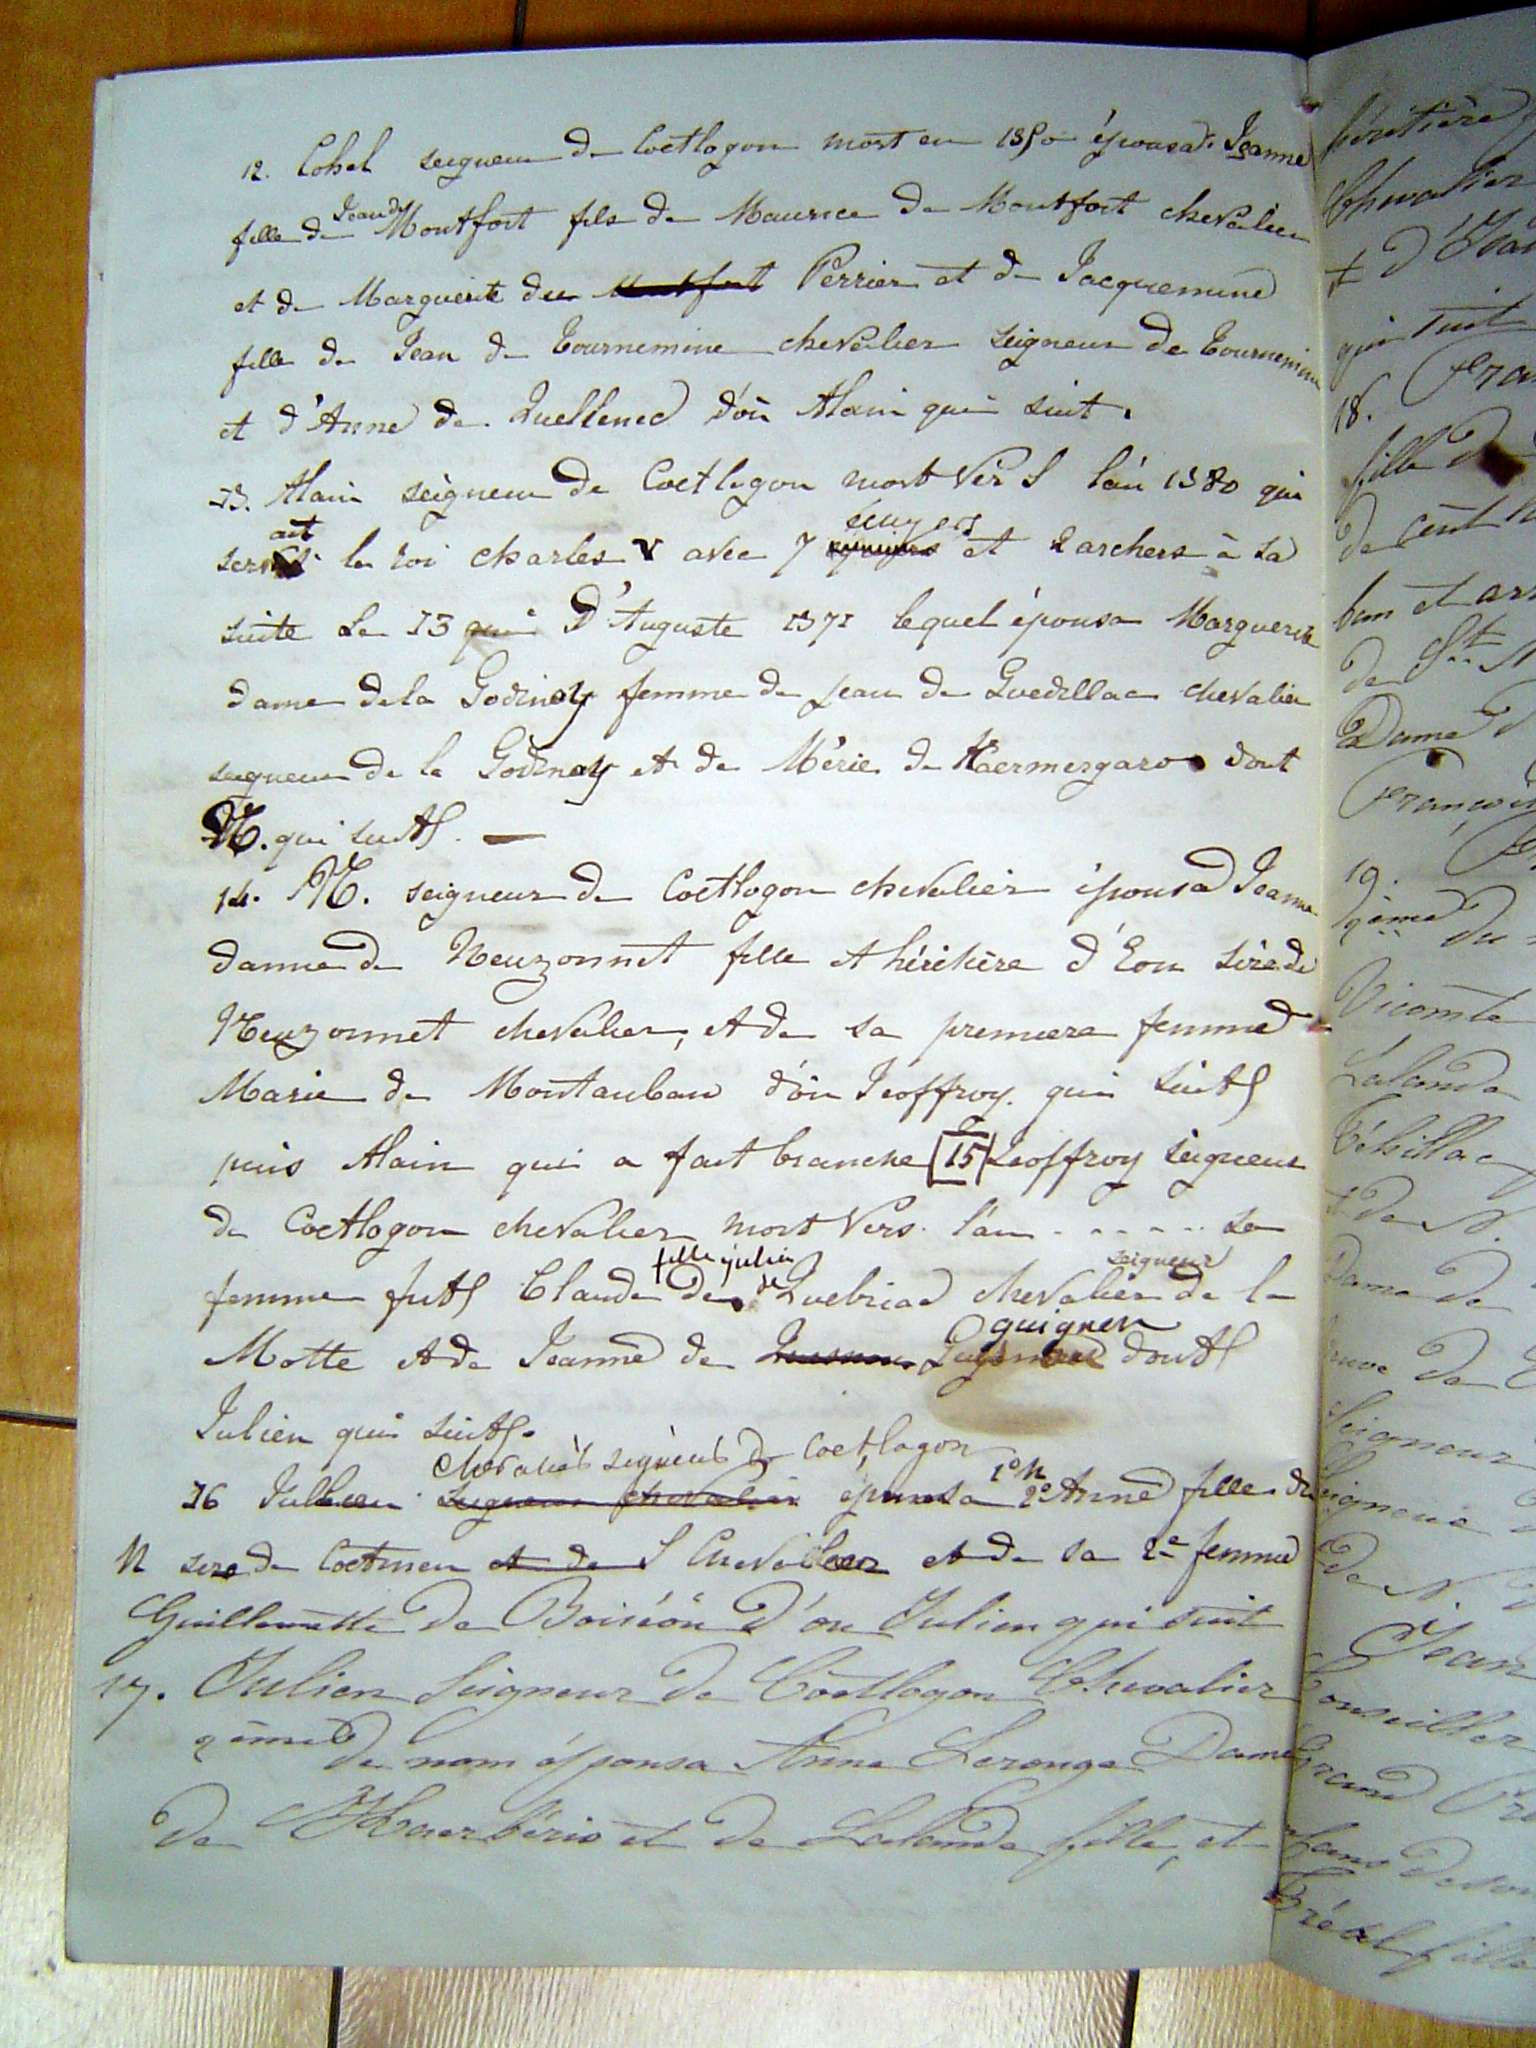 12. Cohel seigneur de Coetlogon mort en 1350 épousa Jeanne
fille de Jean de Montfort fils de Maurice de Montfort chevalier
et de Marguerite du Montfort Perrier et de Jacquemine
fille de Jean de Tournemine chevalier seigneur de Tournemine
et d'Anne de Quellened d'où Alain qui suit.
13. Alain seigneur de Coetlogon mort vers l'an 1380 qui
servait le roi charles V avec 7 écuyers et 2 archers à sa
suite le 13 d'Auguste 1371 lequel épousa Marguerite
dame de la Godinay femme de jean de Guedillac chevalier
seigneur de la Godinay et de Mérie de Kaermergaro dont
N. qui suit. —
14. N. seigneur de Coetlogon chevalier épousa Jeanne
dame de Neuzonnet fille et héritière d'Eon sire de
Neuzonnet chevalier, et de sa premiere femme
Marie de Montauban d'où Jeoffroy qui suit
puis Alain qui a fait branche [15] Jeoffroy seigneur
de Coetlogon chevalier mort vers l'an . . . . . sa
femme fut Claude fille julien de Quebriac chevalier seigneur de la
Motte et de Jeanne de guignen dont
Julien qui suit.
chevalier seigneur de Coetlogon
16 Jullien seigneur chevalier épousa 1º N 2º Anne fille de
N sire de Coetmen et de chevalier et de sa 2e femme
Guillemette de Boiséön d'où Julien qui suit
17. Julien Seigneur de Coëtlogon Chevalier
2ème de nom épousa Anne Lerouge Dame
de Kaerbério et de Lalande fille, et
héritière
Chevalier
qui suit
18.
fille de
de cent
ban et arr
de St. N
Dame
François
19.
2ème du
Vicomte
Lalande
Téhillac
et de N.
Dame de
Seigneur
Seigneur
de N.
Jean
Conseiller
Grand
Bréal fille